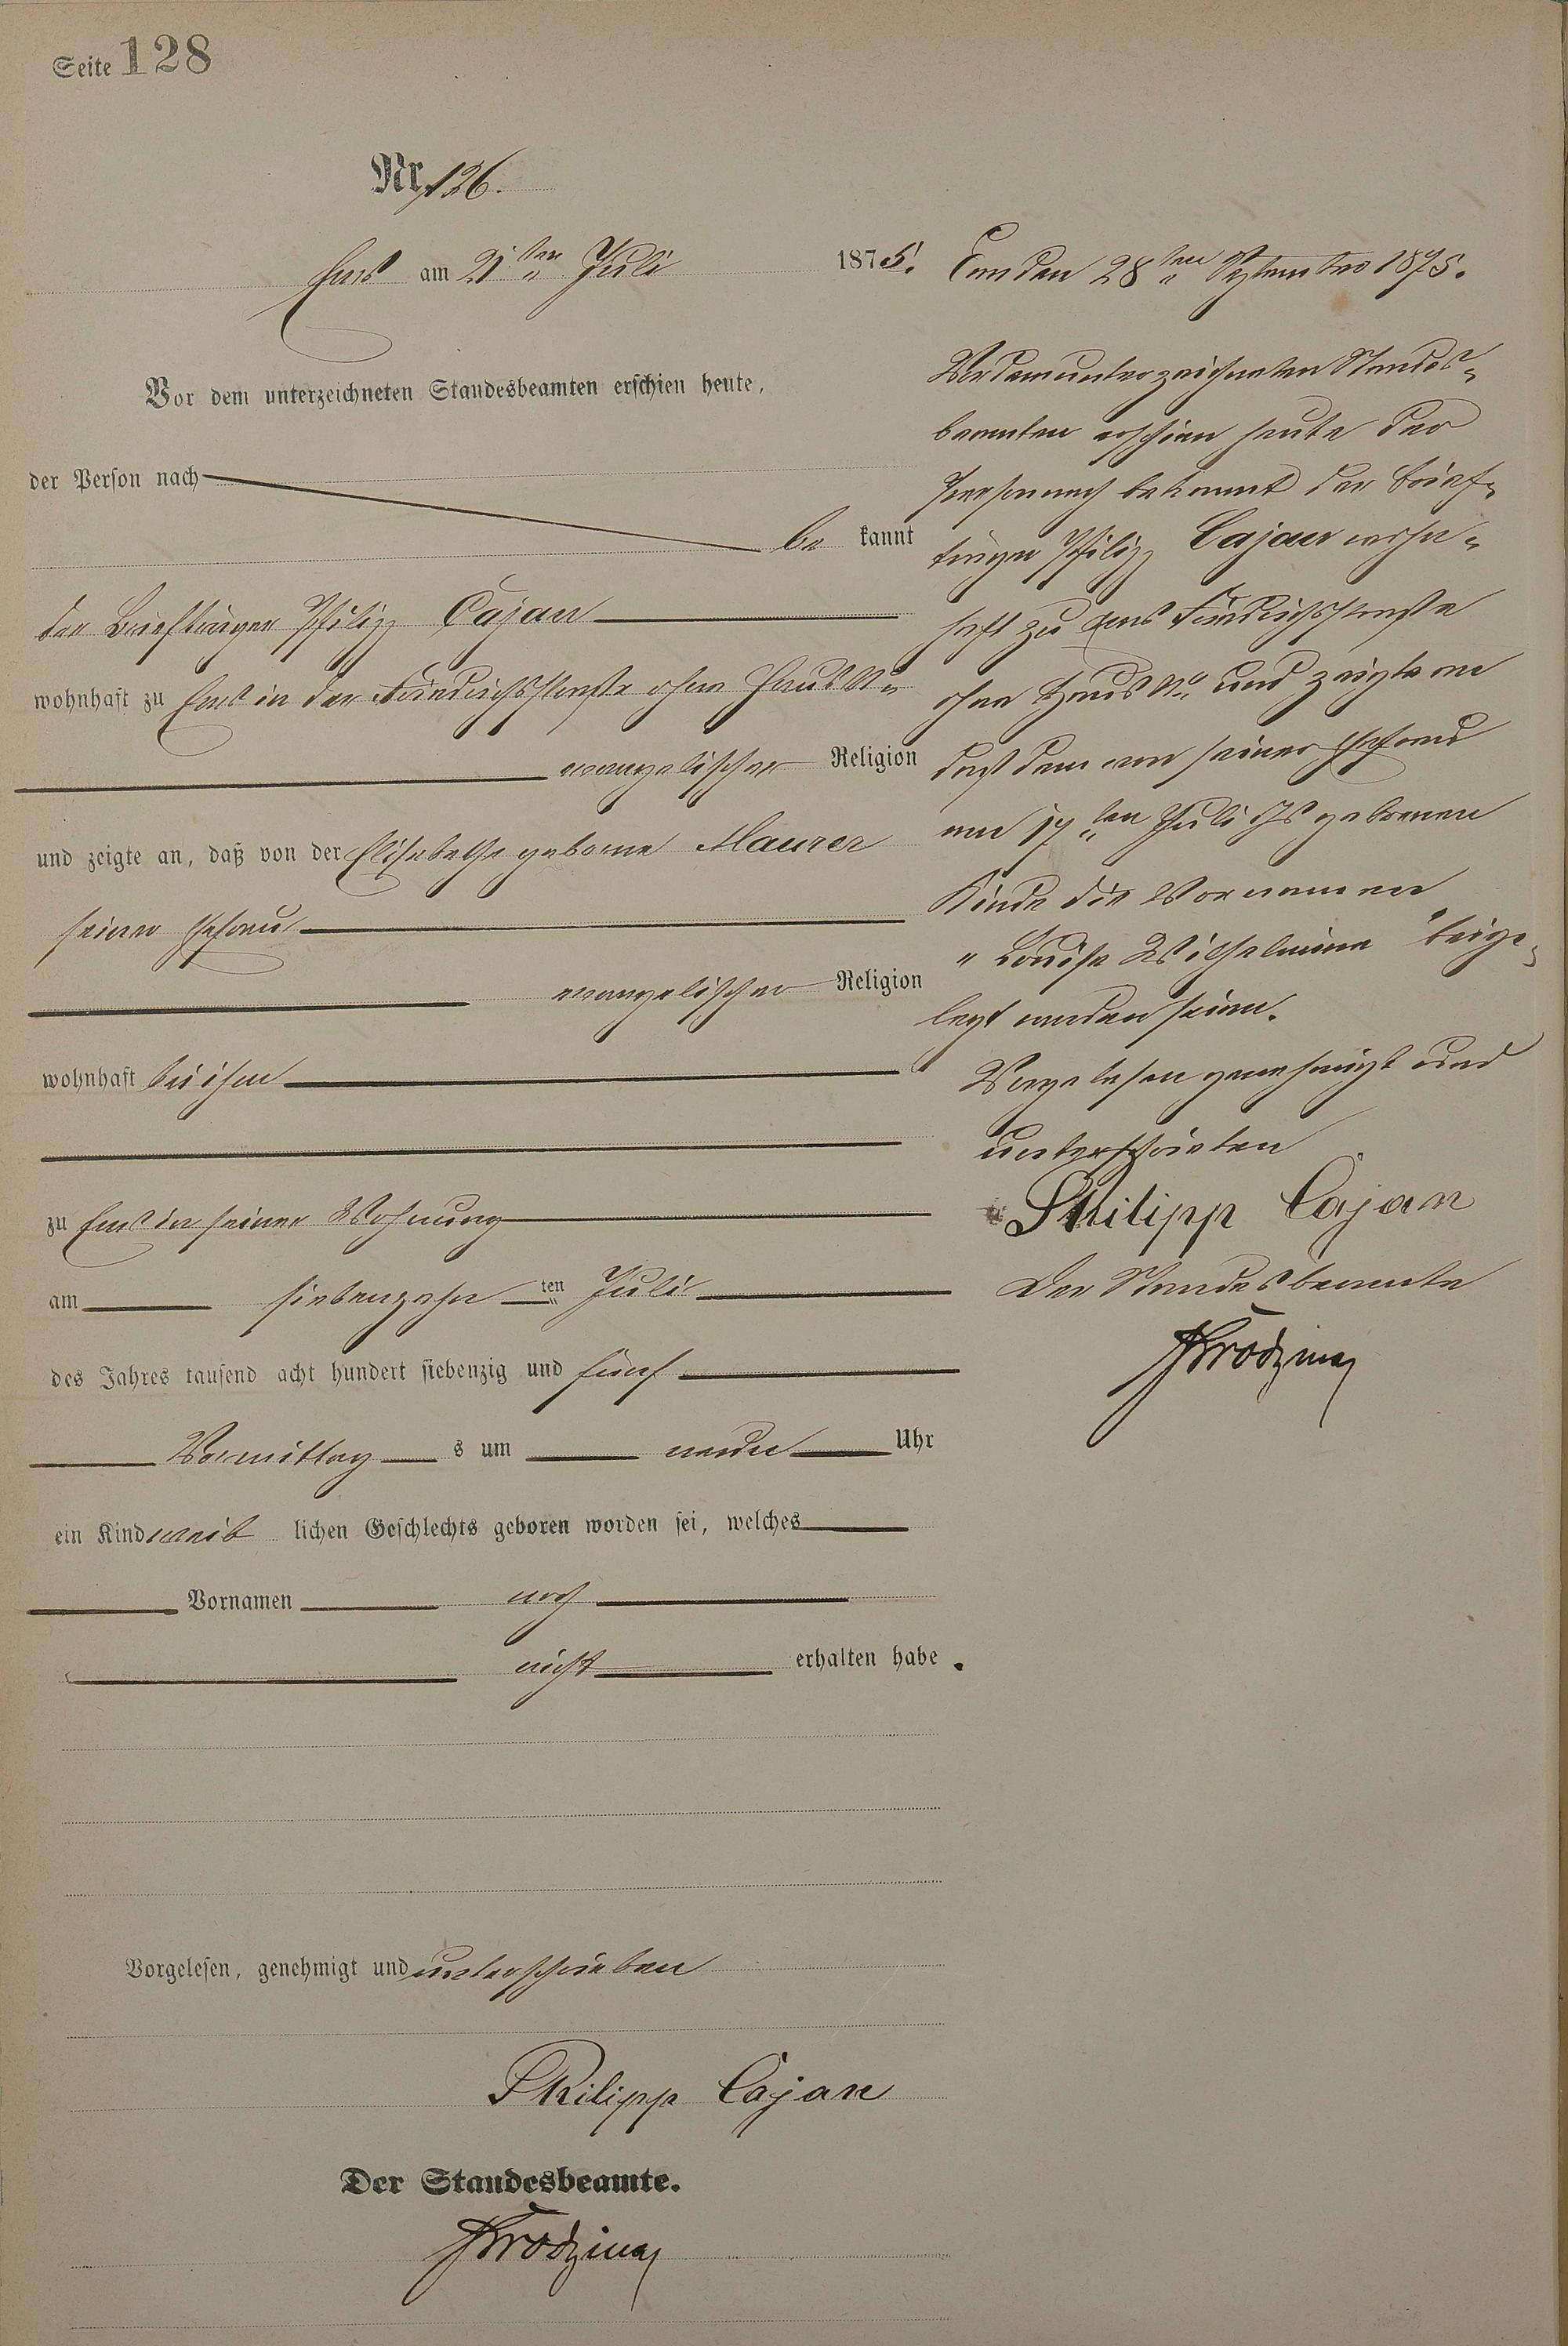 Seite 128
Nr. 126.
Ems am 21ten Juli 1875.
Vor dem unterzeichneten Standesbeamten erschien heute,
der Person nach
be kannt
der Briefträger Philipp Cajan
wohnhaft zu Ems in der Friedrichsstraße ohne Haus No
evangelischer Religion
und zeigte an, daß von der Elisabethe geborne Maurer
seiner Ehefrau
evangelischer Religion
wohnhaft bei ihm
zu Ems in seiner Wohnung
am siebenzehn ten Juli
des Jahres tausend acht hundert siebenzig und fünf
Vormittag s um neun Uhr
ein Kind weib lichen Geschlechts geboren worden sei, welches
Vornamen noch
nicht erhalten habe.
Vorgelesen, genehmigt und unterschrieben
Philipp Cajan
Der Standesbeamte.
Ems den 28ten September 1875.
Vor dem unterzeichneten Standes-
beamten erschien heute der
Person nach bekannt der Brief-
träger Philipp Cajan wohn-
haft zu Ems Friedrichsstraße
ohne Haus No und zeigte an
daß dem von seiner Ehefrau
am 17ten Juli gebornen
Kinde die Vornamen
"Louise Wilhelmine" beige-
legt worden seien.
Vorgelesen genehmigt und
unterschrieben
Philipp Cajan
Der Standesbeamte